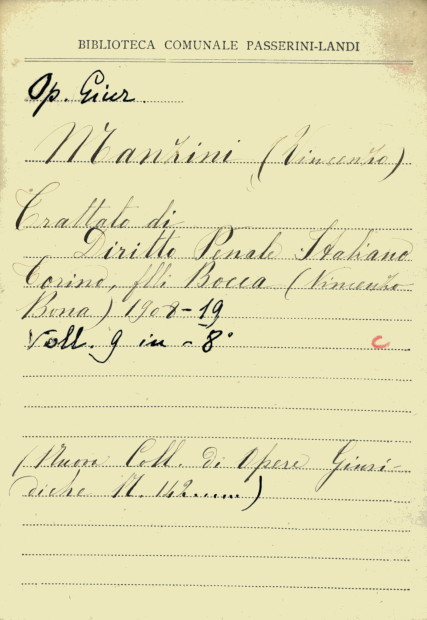 BIBLIOTECA COMUNALE PASSERINI-LANDI
Op. Giur.
Manzini (Vincenzo)
Trattato di
Diritto Penale Italiano
Torino, flli Bocca (Vincenzo
Bona) 1908-19
Voll. 9 in-8°
C
(Nuov Coll. di Opere Giuri-
diche N. 142......)